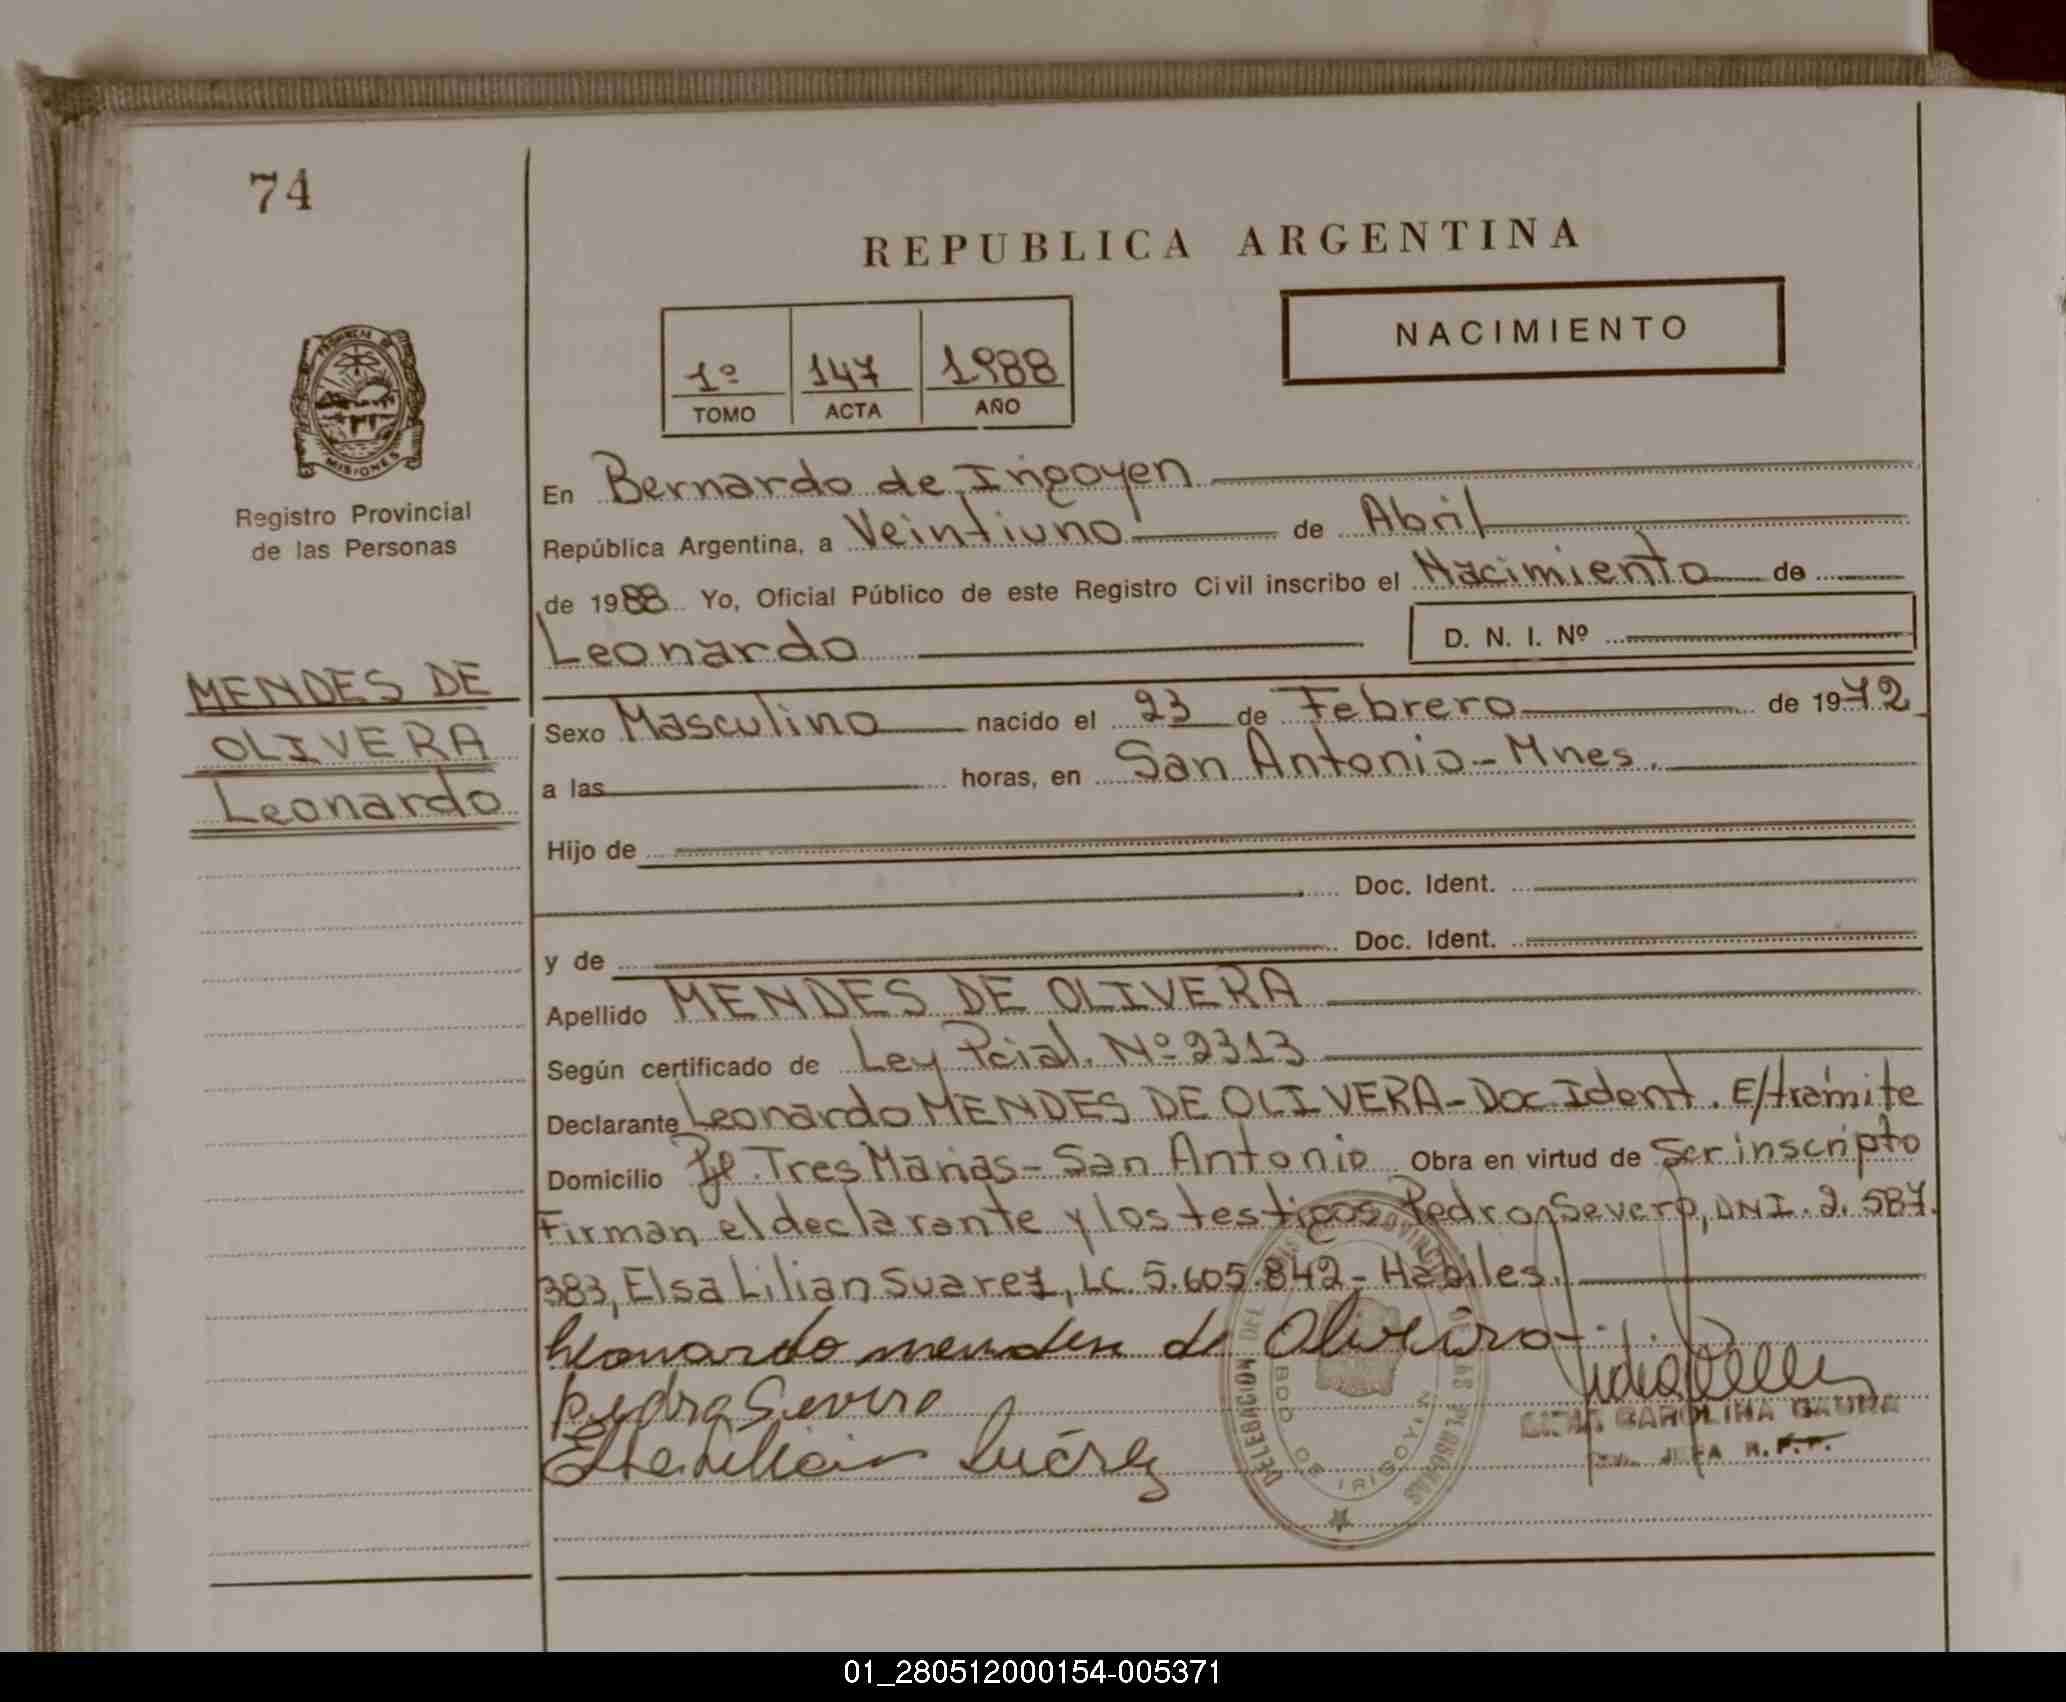 74
REPUBLICA ARGENTINA
NACIMIENTO
1º 147 1988
TOMO ACTA AÑO
PROVINCIA DE
MISIONES
Registro Provincial
de las Personas
MENDES DE
OLIVERA
Leonardo
En Bernardo de Irigoyen
República Argentina, a Veintiuno de Abril
de 1988 Yo, Oficial Público de este Registro Civil inscribo el Nacimiento de
Leonardo D. N. I. Nº
Sexo Masculino nacido el 23 de Febrero de 1972
a las horas, en San Antonio - Mnes.
Hijo de
Doc. Ident.
y de Doc. Ident.
Apellido MENDES DE OLIVERA
Según certificado de Ley Pcial. Nº 2313
Declarante Leonardo MENDES DE OLIVERA - Doc. Ident. E/trámite
Domicilio Tres Marias - San Antonio Obra en virtud de Ser inscripto
Firman el declarante y los testigos Pedro Severo, DNI. 2.587.
383, Elsa Lilian Suarez, LC. 5.605.842 - Habiles.
Leonardo mendes de Oliveira
Pedro Severo
Elsa Lilian Suárez
DELEGACION DEL LAS PERSONAS
BDO DE IRIGOYEN
CAROLINA GAUNA
JEFA R.P.P.
01_280512000154-005371